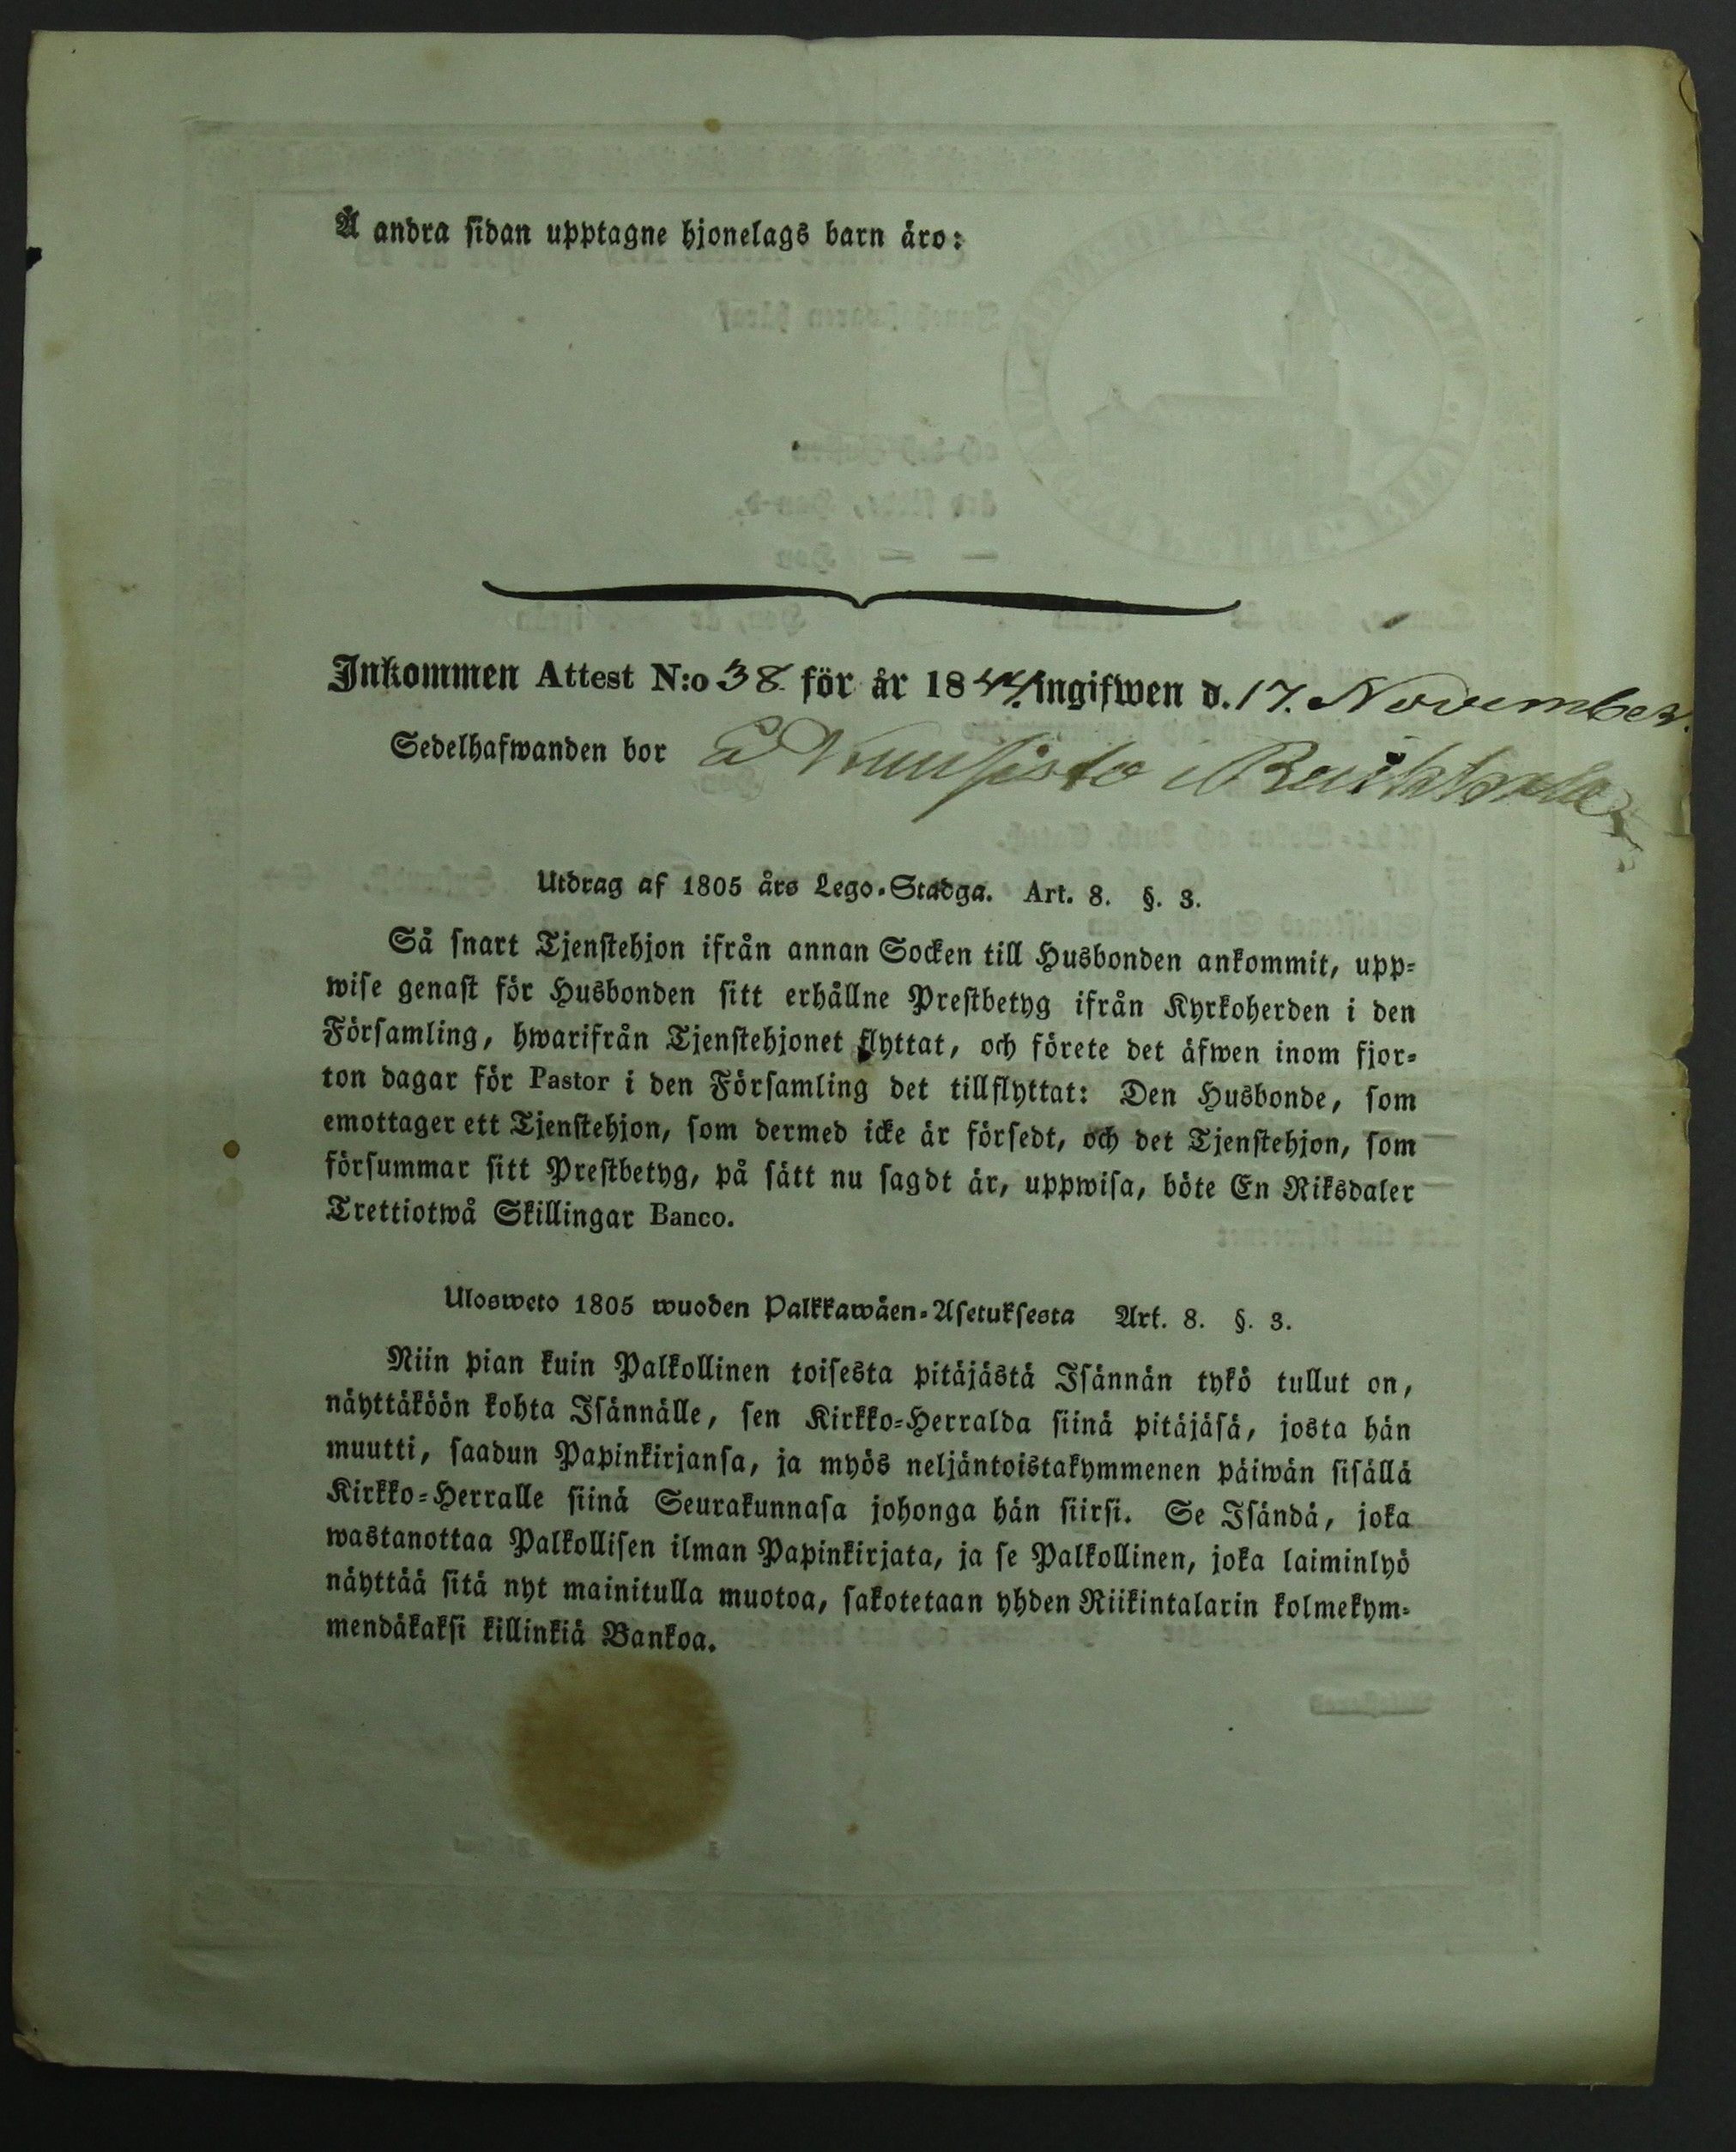 Å andra sidan upptagne hjonelags barn äro:
Inkommen Attest N:o 38. för år 1844. ingifwen d. 17. November.
Sedelhafwanden bor å Kuusisto
Utdrag af 1805 års Lego-Stadga. Art. 8. §. 3.
Så snart Tjenstehjon ifrån annan Socken till Husbonden ankommit, upp-
wise genast för Husbonden sitt erhållne Prestbetyg ifrån Kyrkoherden i den
Församling, hwarifrån Tjenstehjonet flyttat, och förete det äfwen inom fjor-
ton dagar för Pastor i den Församling det tillflyttat: Den Husbonde, som
emottager ett Tjenstehjon, som dermed icke är försedt, och det Tjenstehjon, som
försummar sitt Prestbetyg, på sätt nu sagdt är, uppwisa, böte En Riksdaler
Trettiotwå Skillingar Banco.
Ulosweto 1805 wuoden Palkkawäen-Asetuksesta Art. 8. §. 3.
Niin pian kuin Palkollinen toisesta pitäjästä Isännän tykö tullut on,
näyttäköön kohta Isännälle, sen Kirkko-Herralda siinä pitäjäsä, josta hän
muutti, saadun Papinkirjansa, ja myös neljäntoistakymmenen päiwän sisällä
Kirkko-Herralle siinä Seurakunnasa johonga hän siirsi. Se Isändä, joka
wastanottaa Palkollisen ilman Papinkirjata, ja se Palkollinen, joka laiminlyö
näyttää sitä nyt mainitulla muotoa, sakotetaan yhden Riikintalarin kolmekym-
mendäkaksi killinkiä Bankoa.